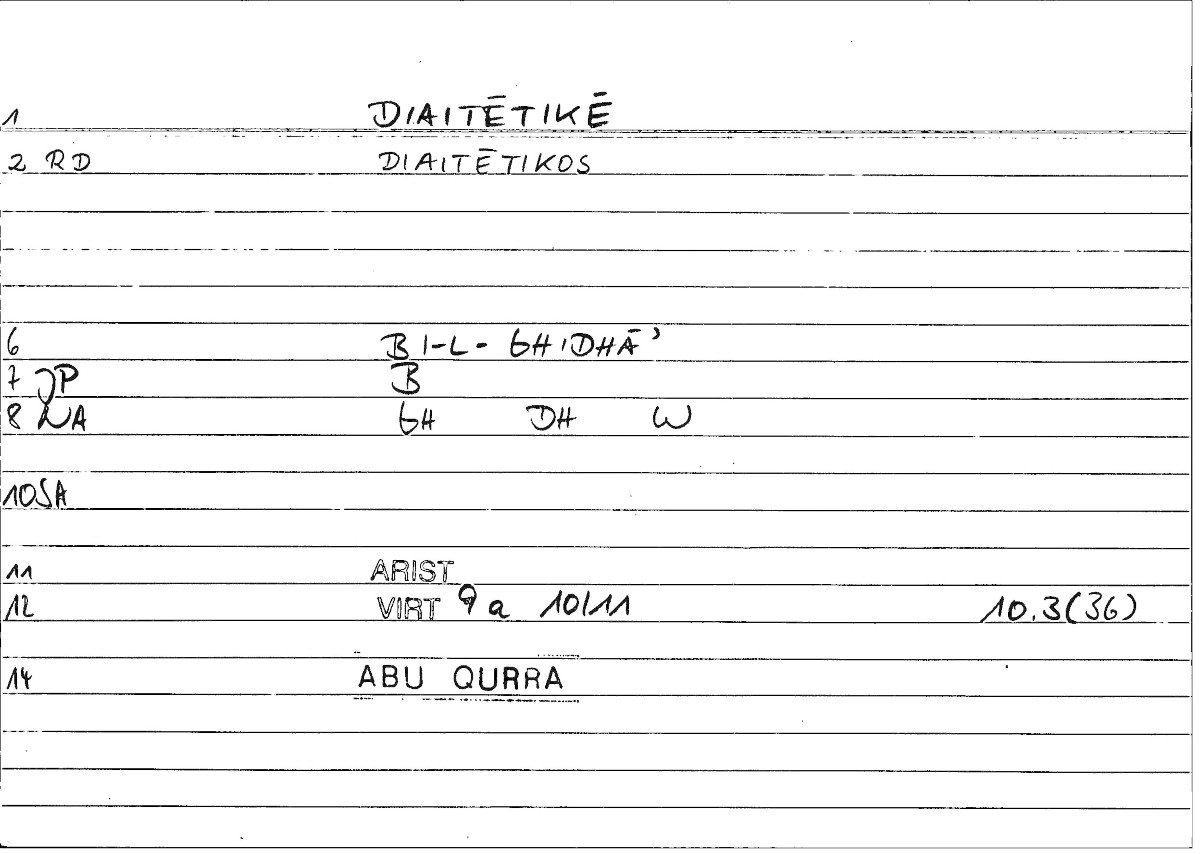 1 DIAITĒTIKĒ
2 RD DIAITĒTIKOS
6 BI-L-GHIDHĀʾ
7 JP B
8 NA GH DH W
10 SA
11 ARIST
12 VIRT 9 a 10/11 10.3(36)
14 ABU QURRA